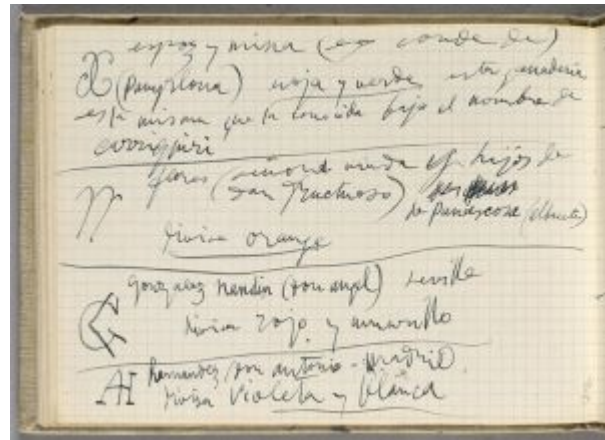 espoz y mina (ex conde de)
(Pamplona) roja y verde esta ganaderia
es la misma que la conocida bajo el nombre de
carriquiri
flores (señora viuda e hijos de
don Fructuoso)
de Peñascosa (albacete)
divisa orange
Gonzalez Nandin (don angel) sevilla
divisa rojo y amarillo
AH hernandez don antonio - madrid
divisa violeta y blanca